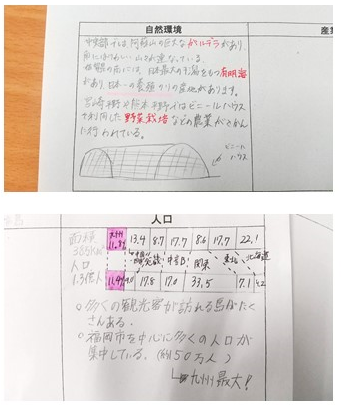 自然環境
産
中央部では、阿蘇山の巨大なカルデラがあり、
南にはけわしい山々が連なっている。
の南には、日本最大の干潟をもつ有明海
があり、日本一の養殖のりの産地があります。
宮崎平野や熊本平野ではビニールハウス
を利用した野菜栽培などの農業がさかん
に行われている。
ビニール
ハウス
人口
面積
九州
11.8% 13.4 8.7 17.7 8.6 17.7 22.1
中国・四国 近畿 中部 関東 東北 北海道
人口
1.3億人 11.4% 17.8 17.0 33.5 7.1 4.2
○多くの観光客が訪れる島がたく
さんある。
○福岡市を中心に多くの人口が
集中している。(約150万人)
九州最大!